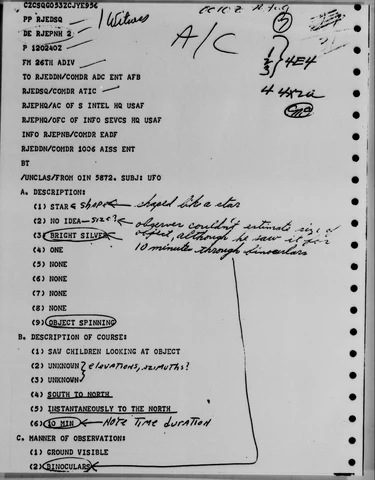 CZCSQG0532CJYE956
PP RJEDSQ 1 Witness
DE RJEPNH 2
P 120240Z A/C
FM 26TH ADIV
TO RJEDDN/COMDR ADC ENT AFB
RJEDSQ/COMDR ATIC
RJEPHQ/AC OF S INTEL HQ USAF
RJEPHQ/OFC OF INFO SEVCS HQ USAF
INFO RJEPNB/COMDR EADF
RJEDDN/COMDR 1006 AISS ENT
BT
3
1
2
3
4E4
4 4X2a
/UNCLAS/FROM OIN 5872. SUBJ: UFO
A. DESCRIPTION:
(1) STAR shape? shaped like a star
(2) NO IDEA - size? observer couldn't estimate size of
(3) BRIGHT SILVER object, although he saw it for
(4) ONE 10 minutes through binoculars
(5) NONE
(6) NONE
(7) NONE
(8) NONE
(9) OBJECT SPINNING
B. DESCRIPTION OF COURSE:
(1) SAW CHILDREN LOOKING AT OBJECT
(2) UNKNOWN elevations, azimuths?
(3) UNKNOWN
(4) SOUTH TO NORTH
(5) INSTANTANEOUSLY TO THE NORTH
(6) 10 MIN Note Time duration
C. MANNER OF OBSERVATION:
(1) GROUND VISIBLE
(2) BINOCULARS